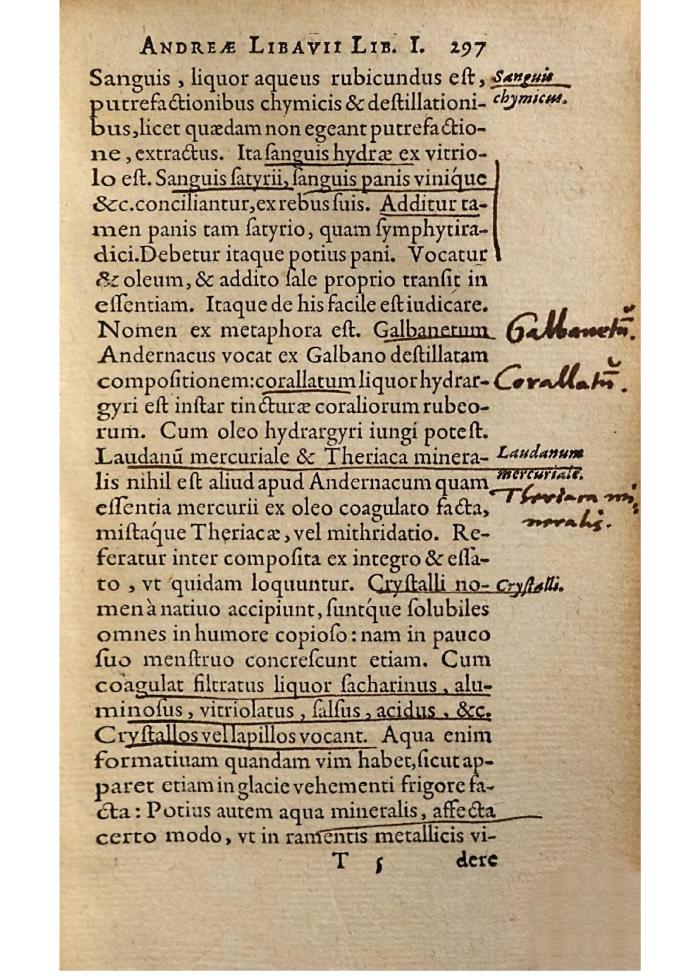 ANDREÆ LIBAVII LIB. I. 297
Sanguis, liquor aqueus rubicundus eſt,
Sanguis
putrefactionibus chymicis & deſtillationi-
chymicus.
bus, licet quædam non egeant putrefactio-
ne, extractus. Ita ſanguis hydræ ex vitrio-
lo eſt. Sanguis ſatyrii, ſanguis panis viniq́ue
&c. conciliantur, ex rebus ſuis. Additur ta-
men panis tam ſatyrio, quam ſymphytira-
dici. Debetur itaque potius pani. Vocatur
& oleum, & addito ſale proprio tranſit in
eſſentiam. Itaque de his facile eſt iudicare.
Nomen ex metaphora eſt. Galbanetum
Galbanetū.
Andernacus vocat ex Galbano deſtillatam
compoſitionem: corallatum liquor hydrar-
Corallatū.
gyri eſt inſtar tincturæ coraliorum rubeo-
rum. Cum oleo hydrargyri iungi poteſt.
Laudanū mercuriale & Theriaca minera-
Laudanum
lis nihil eſt aliud apud Andernacum quam
mercuriale.
eſſentia mercurii ex oleo coagulato facta,
Theriaca mi
miſtaq́ue Theriacæ, vel mithridatio. Re-
neralis.
feratur inter compoſita ex integro & eſſa-
to, vt quidam loquuntur. Cryſtalli no-
Cryſtalli.
men à natiuo accipiunt, ſuntq́ue ſolubiles
omnes in humore copioſo: nam in pauco
ſuo menſtruo concreſcunt etiam. Cum
coagulat filtratus liquor ſacharinus, alu-
minoſus, vitriolatus, ſalſus, acidus, &c.
Cryſtallos vel lapillos vocant. Aqua enim
formatiuam quandam vim habet, ſicut ap-
paret etiam in glacie vehementi frigore fa-
cta: Potius autem aqua mineralis, affecta
certo modo, vt in ramentis metallicis vi-
T 5 dere